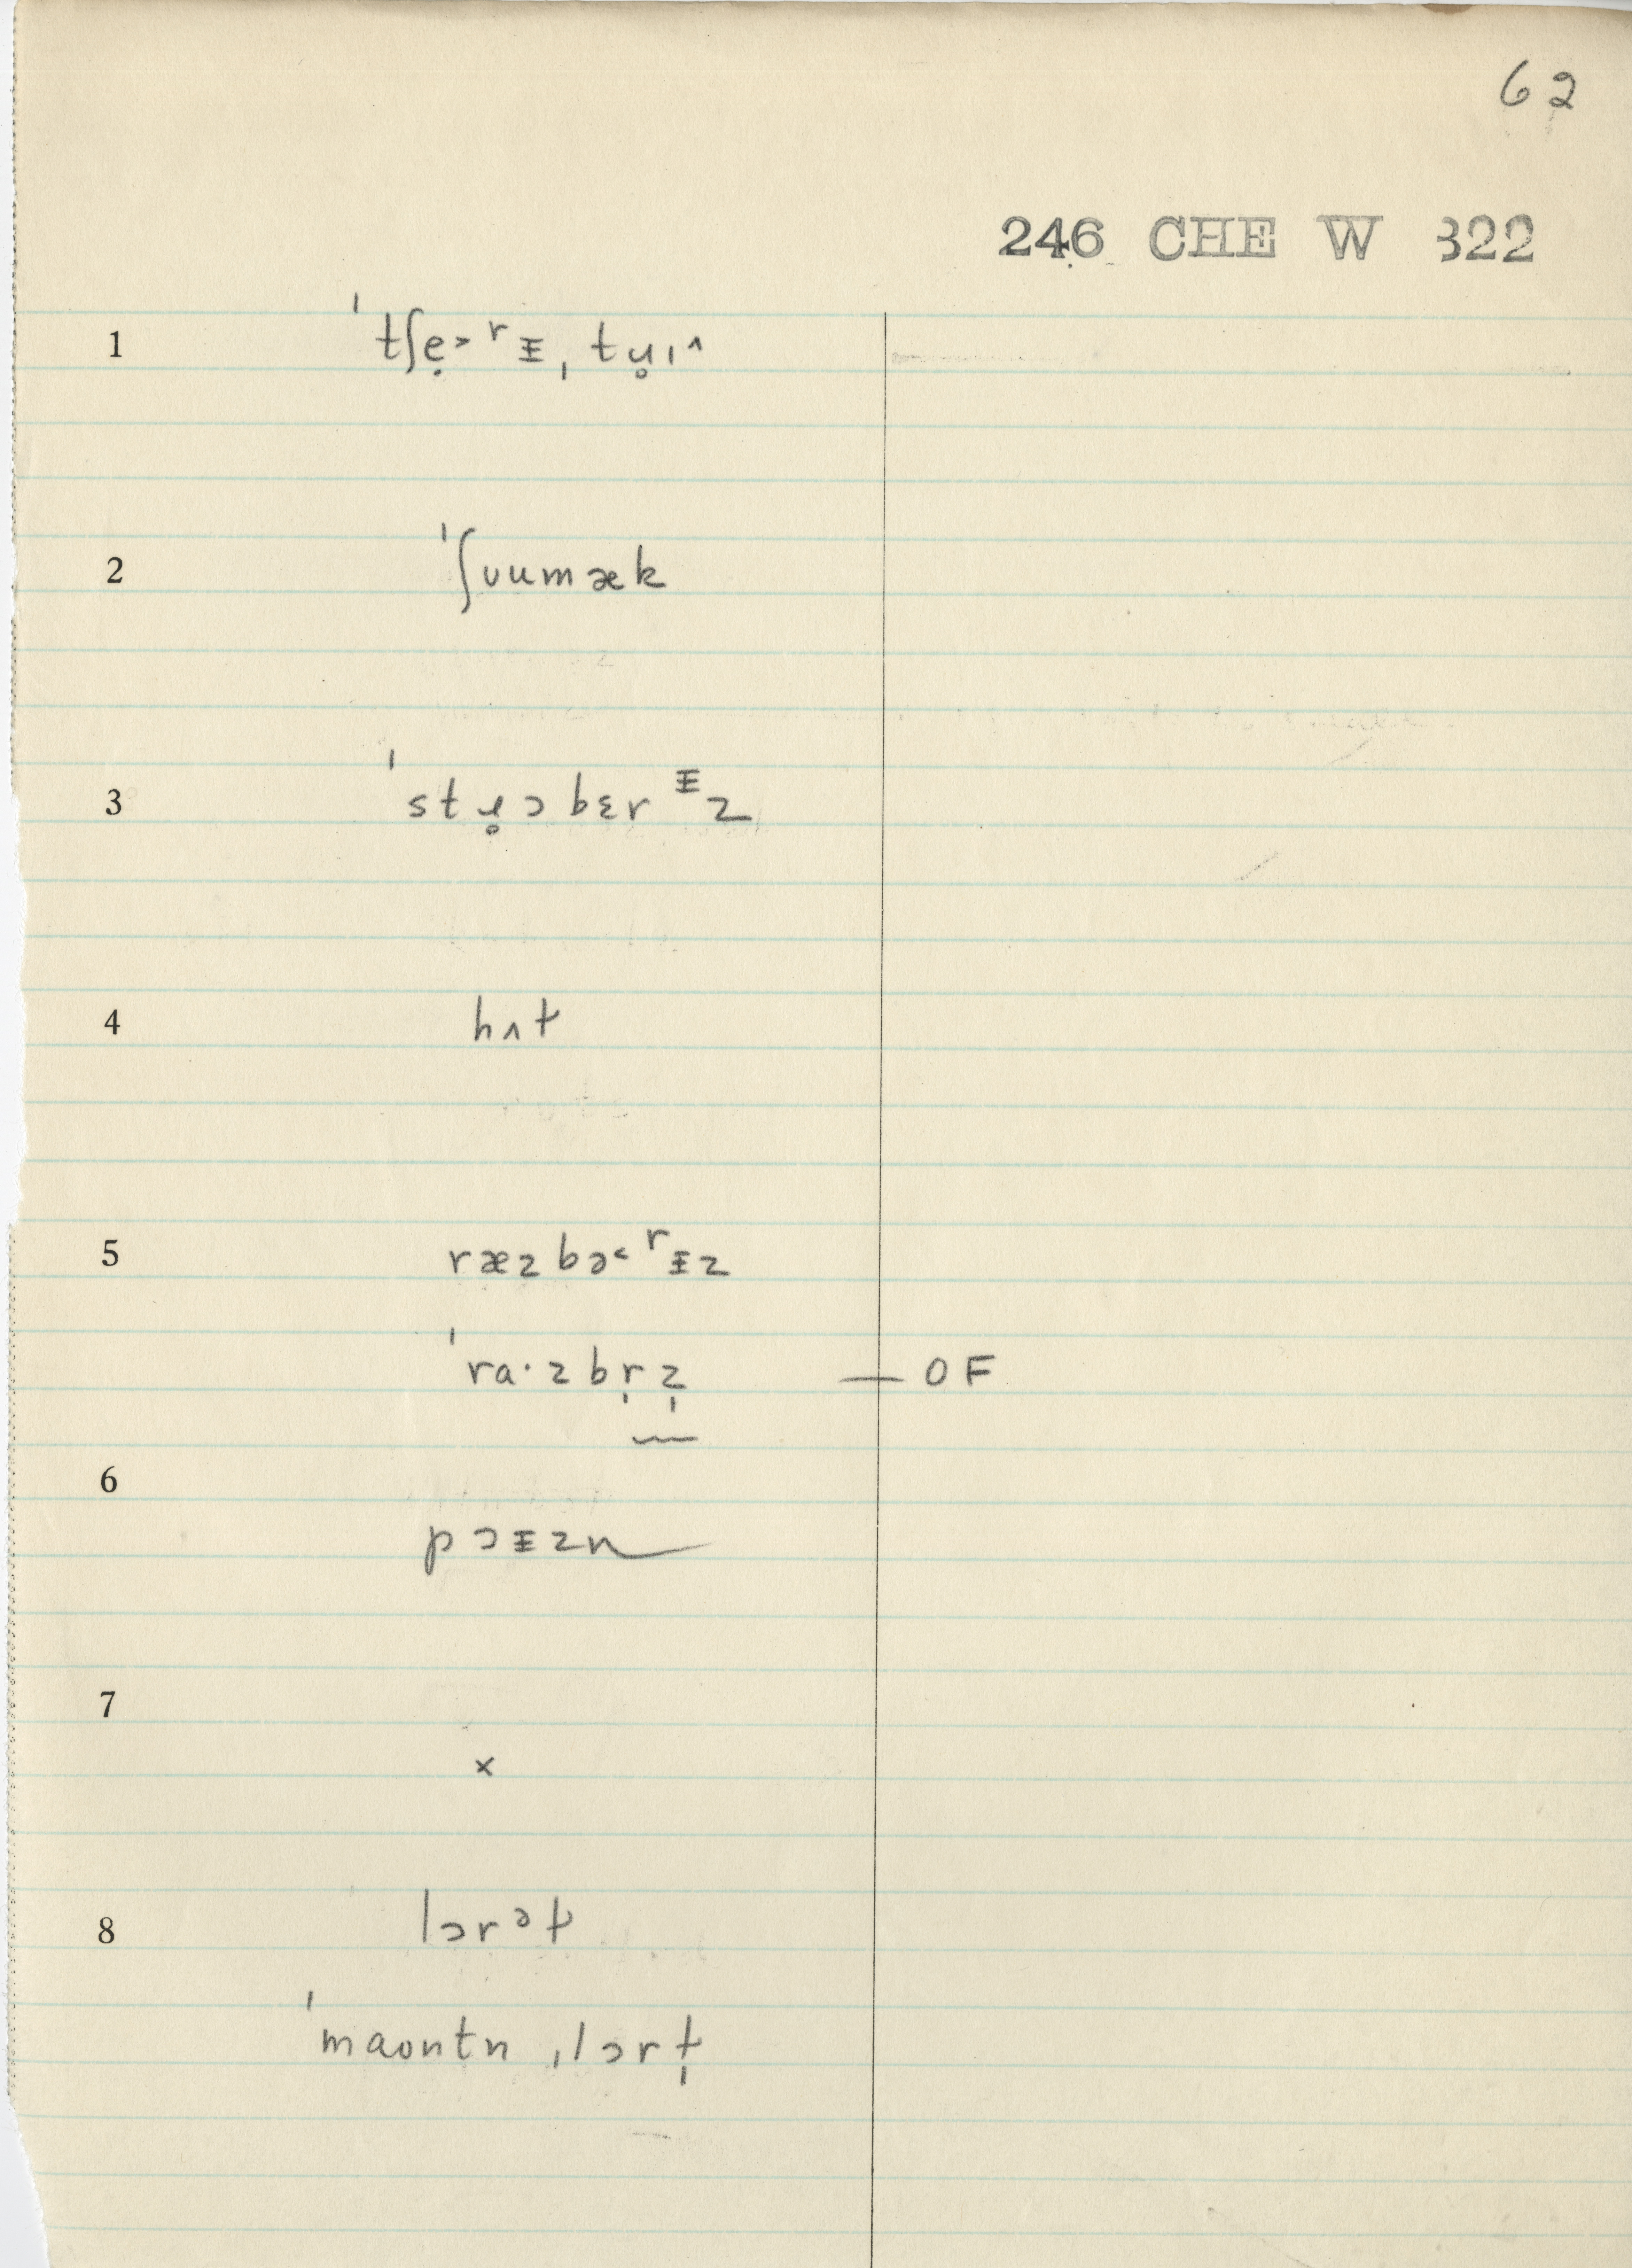 62
246 CHE W 322
1 ˈtʃẹ˃ʳᵻ ˌtṳɪ^
2 ˈʃuumæk
3 ˈstɹ̥ɔbɛrᵻz
4 hʌt
5 ræzbə˂ʳᵻz
ˈra·zbr̩z̩ — OF
6 pɔᵻzn
7 ×
8 lɔrəɫ
ˈmaʊntn ˌlɔrɫ̩